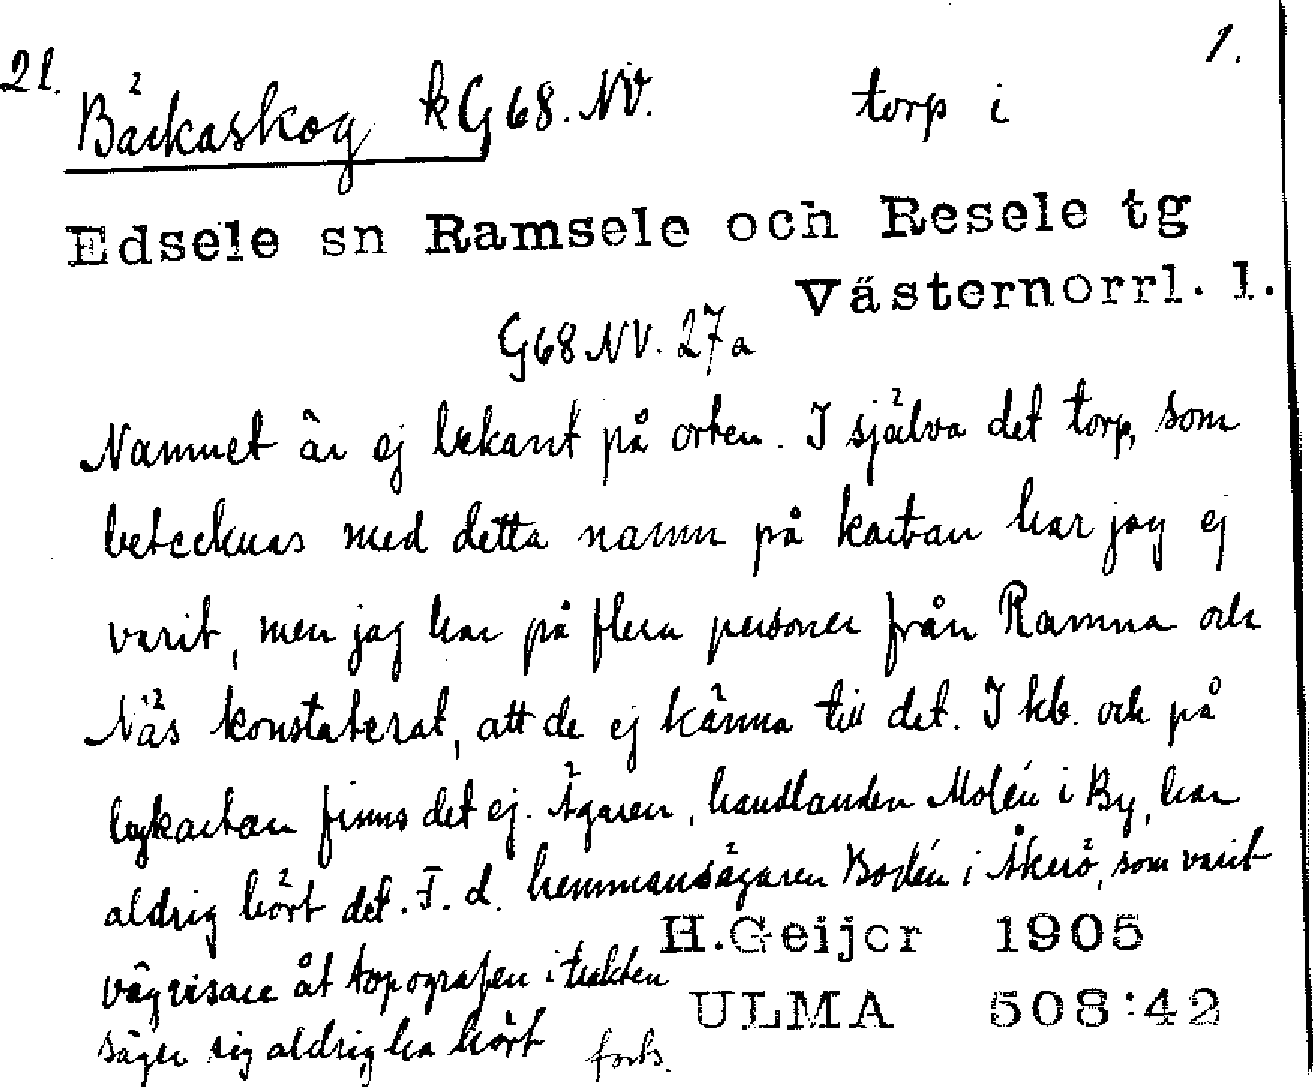 21. 1.
Bäckaskog kG68.NV. torp i
Edsele sn Ramsele och Resele tg
Västernorrl. l.
G68 NV. 27a
Namnet är ej bekant på orten. I själva det torp, som
betecknas med detta namn på kartan har jag ej
varit, men jag har på flera personer från Ramna och
Näs konstaterat, att de ej känna till det. I kb. och på
lgkartan finns det ej. Ägaren, handlanden Molén i By, har
aldrig hört det. F. d. hemmansägaren Bodén i Åkerö, som varit
vägvisare åt topografen i trakten
säger sig aldrig ha hört forts.
H.Geijer 1905
ULMA 508:42